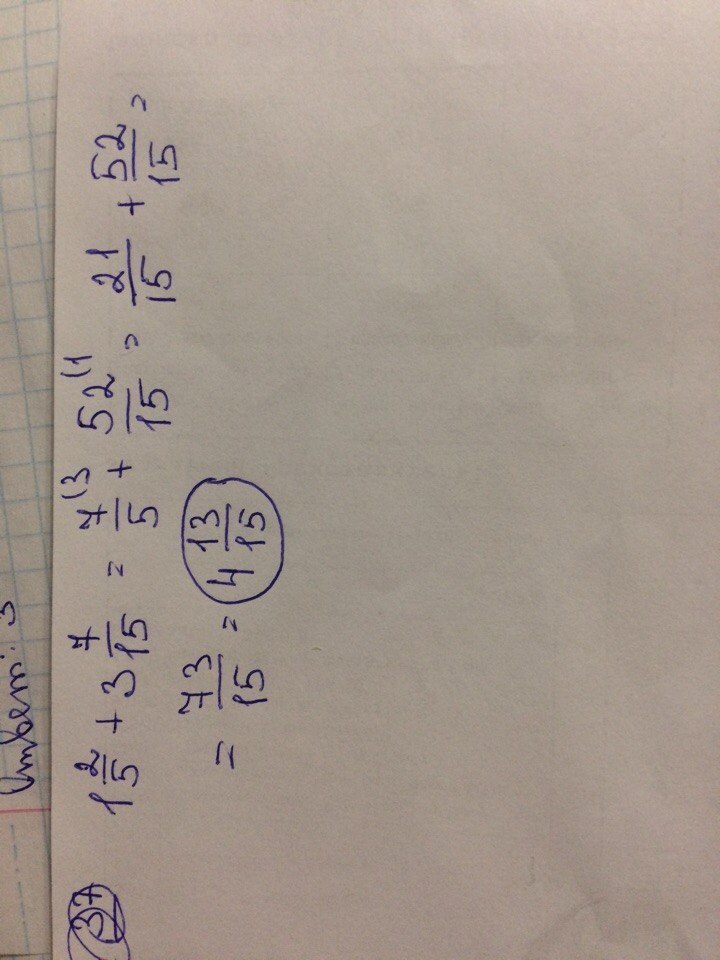 Ответ: 3
37
1 2/5 + 3 7/15 = 7⁽³/5 + 52⁽¹/15 = 21/15 + 52/15 =
= 73/15 = 4 13/15